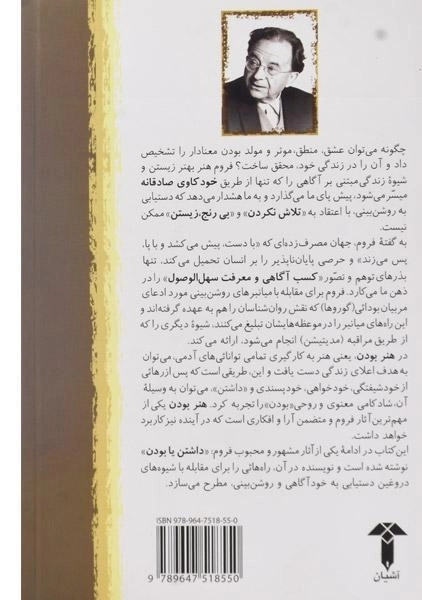 چگونه می‌توان عشق، منطق، موثر و مولد بودن معنادار را تشخیص
داد و آن را در زندگی خود، محقق ساخت؟ فروم هنر بهتر زیستن و
شیوهٔ زندگی مبتنی بر آگاهی را که تنها از طریق خودکاوی صادقانه
میسّر می‌شود، پیش پای ما می‌گذارد و به ما هشدار می‌دهد که دستیابی
به روشن‌بینی، با اعتقاد به «تلاش نکردن» و «بی رنج، زیستن» ممکن
نیست.
به گفتهٔ فروم، جهان مصرف‌زده‌ای که «با دست، پیش می‌کشد و با پا،
پس می‌زند» و حرصی پایان‌ناپذیر را بر انسان تحمیل می‌کند، تنها
بذرهای توهم و تصّور «کسب آگاهی و معرفت سهل‌الوصول» را در
ذهن ما می‌کارد. فروم برای مقابله با میانبرهای روشن‌بینی مورد ادعای
مربیان بودائی (گوروها) که نقش روان‌شناسان را هم به عهده گرفته‌اند و
این راه‌های میانبر را در موعظه‌هایشان تبلیغ می‌کنند، شیوهٔ دیگری را که
از طریق مراقبه (مدیتیشن) انجام می‌شود، ارائه می‌کند.
در هنر بودن، یعنی هنر به کارگیری تمامی توانائی‌های آدمی، می‌توان
به هدف اعلای زندگی دست یافت و این، طریقی است که پس از رهائی
از خودشیفتگی، خودخواهی، خودپسندی و «داشتن»، می‌توان به وسیلهٔ
آن، شادکامی معنوی و روحی «بودن» را تجربه کرد. هنر بودن یکی از
مهم‌ترین آثار فروم و متضمن آرا و افکاری است که در آینده نیز کاربرد
خواهد داشت.
این کتاب در ادامهٔ یکی از آثار مشهور و محبوب فروم: «داشتن یا بودن»
نوشته شده است و نویسنده در آن، راه‌هائی را برای مقابله با شیوه‌های
دروغین دستیابی به خودآگاهی و روشن‌بینی، مطرح می‌سازد.
ISBN 978-964-7518-55-0
9 789647 518550
آشیان